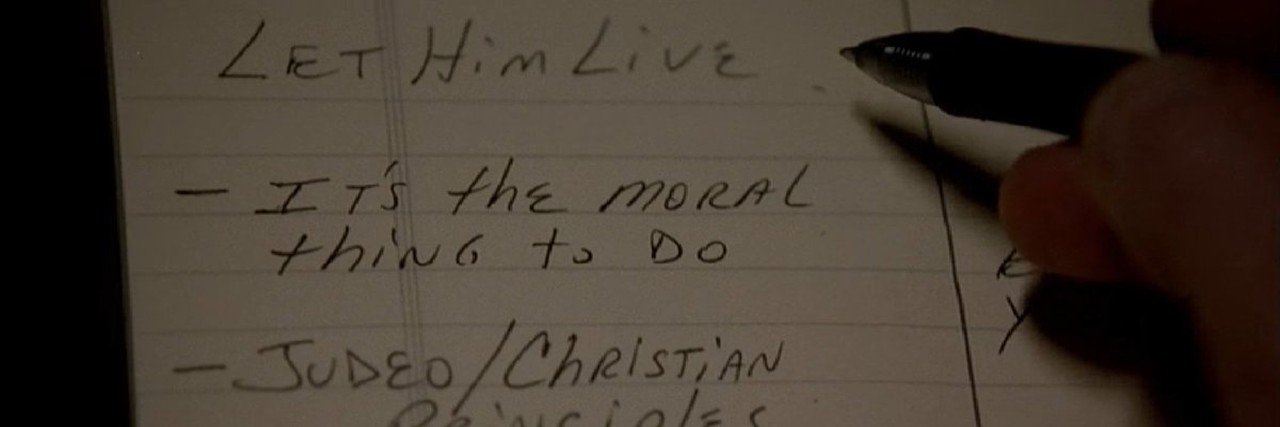 LET Him LivE
- IT's thE moRAL
thiNG to DO
- JUDEO/ChRISTiAN
PRiNciplEs